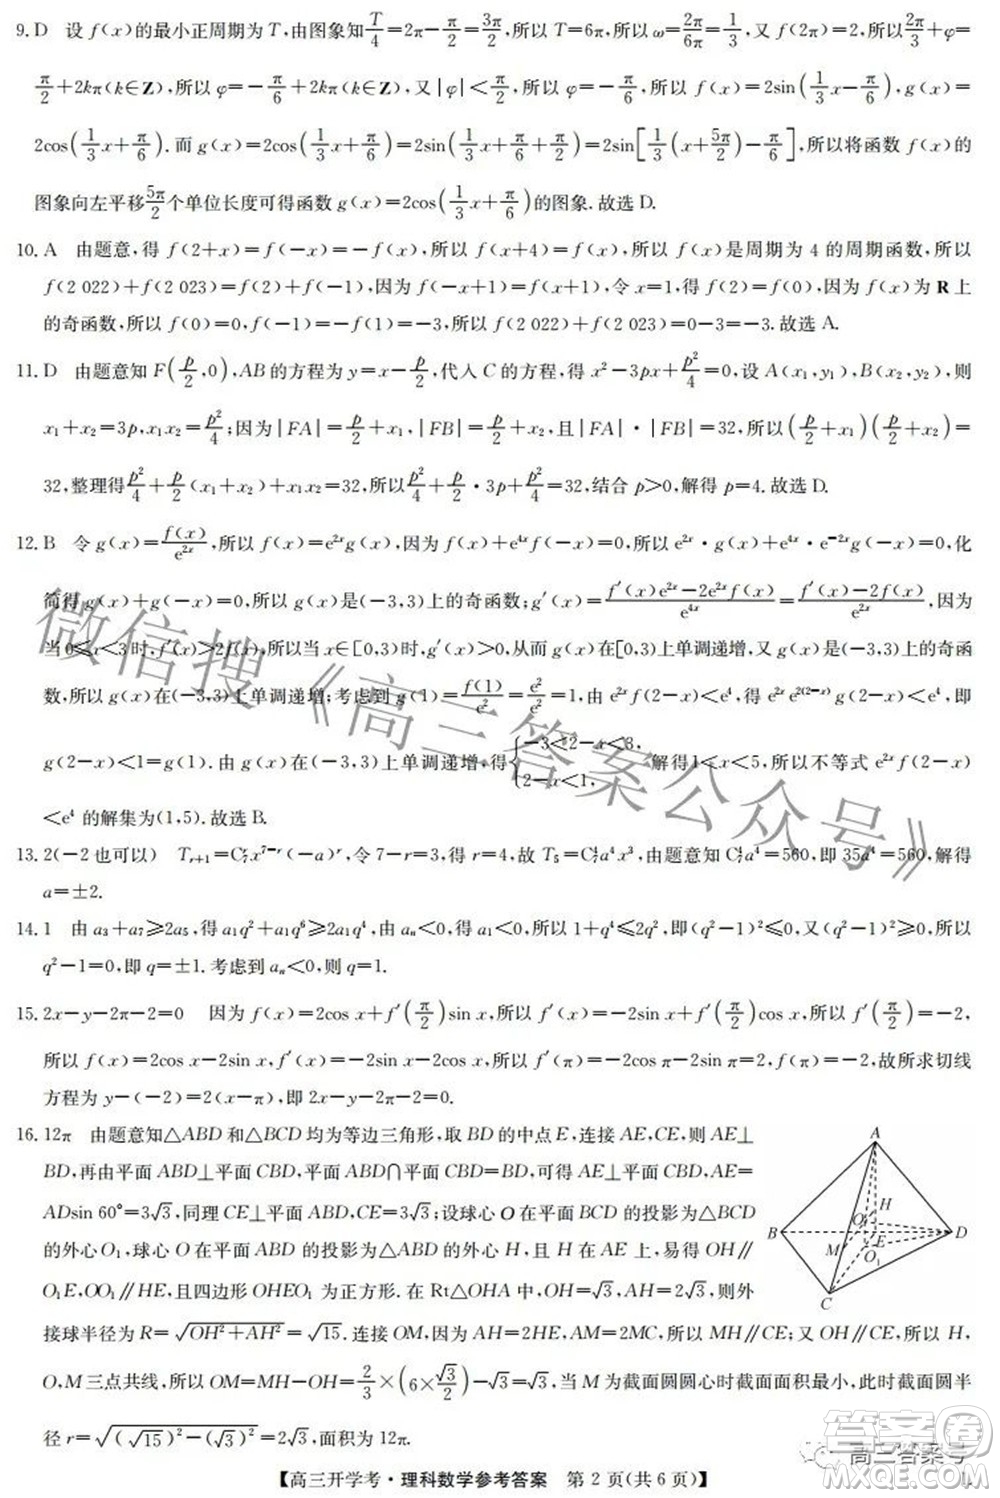 9. D 设 f(x)的最小正周期为 T,由图象知T/4=2π-π/2=3π/2,所以 T=6π,所以 ω=2π/6π=1/3,又 f(2π)=2,所以2π/3+φ=
π/2+2kπ(k∈Z),所以φ=-π/6+2kπ(k∈Z),又|φ|<π/2,所以 φ=-π/6,所以 f(x)=2sin(1/3x-π/6),g(x)=
2cos(1/3x+π/6).而 g(x)=2cos(1/3x+π/6)=2sin(1/3x+π/6+π/2)=2sin[1/3(x+5π/2)-π/6],所以将函数 f(x)的
图象向左平移5π/2个单位长度可得函数 g(x)=2cos(1/3x+π/6)的图象.故选 D.
10. A 由题意,得 f(2+x)=f(-x)=-f(x),所以 f(x+4)=f(x),所以 f(x)是周期为 4 的周期函数,所以
f(2 022)+f(2 023)=f(2)+f(-1),因为 f(-x+1)=f(x+1),令 x=1,得 f(2)=f(0),因为 f(x)为 R 上
的奇函数,所以 f(0)=0,f(-1)=-f(1)=-3,所以 f(2 022)+f(2 023)=0-3=-3.故选 A.
11. D 由题意知 F(p/2,0),AB 的方程为 y=x-p/2,代入 C 的方程,得 x²-3px+p²/4=0,设 A(x₁,y₁),B(x₂,y₂),则
x₁+x₂=3p,x₁x₂=p²/4;因为|FA|=p/2+x₁,|FB|=p/2+x₂,且|FA|·|FB|=32,所以(p/2+x₁)(p/2+x₂)=
32,整理得p²/4+p/2(x₁+x₂)+x₁x₂=32,所以p²/4+p/2·3p+p²/4=32,结合 p>0,解得 p=4.故选 D.
12. B 令 g(x)=f(x)/e²ˣ,所以 f(x)=e²ˣg(x),因为 f(x)+e⁴ˣf(-x)=0,所以 e²ˣ·g(x)+e⁴ˣ·e⁻²ˣg(-x)=0,化
简得 g(x)+g(-x)=0,所以 g(x)是(-3,3)上的奇函数;g′(x)=f′(x)e²ˣ-2e²ˣf(x)/e⁴ˣ=f′(x)-2f(x)/e²ˣ,因为
当 0≤x<3 时,f′(x)>2f(x),所以当 x∈[0,3)时,g′(x)>0,从而 g(x)在[0,3)上单调递增,又 g(x)是(-3,3)上的奇函
数,所以 g(x)在(-3,3)上单调递增;考虑到 g(1)=f(1)/e²=e²/e²=1,由 e²ˣf(2-x)<e⁴,得 e²ˣe²⁽²⁻ˣ⁾g(2-x)<e⁴,即
g(2-x)<1=g(1).由 g(x)在(-3,3)上单调递增,得{-3<2-x<3, 2-x<1, 解得1<x<5,所以不等式 e²ˣf(2-x)
<e⁴ 的解集为(1,5).故选 B.
13. 2(-2 也可以) Tᵣ₊₁=C₇ʳx⁷⁻ʳ(-a)ʳ,令 7-r=3,得 r=4,故 T₅=C₇⁴a⁴x³,由题意知 C₇⁴a⁴=560,即 35a⁴=560,解得
a=±2.
14. 1 由 a₃+a₇≥2a₅,得 a₁q²+a₁q⁶≥2a₁q⁴,由 aₙ<0,得 a₁<0,所以 1+q⁴≤2q²,即(q²-1)²≤0,又(q²-1)²≥0,所以
q²-1=0,即 q=±1.考虑到 aₙ<0,得 q=1.
15. 2x-y-2π-2=0 因为 f(x)=2cos x+f′(π/2)sin x,所以 f′(x)=-2sin x+f′(π/2)cos x,所以 f′(π/2)=-2,
所以 f(x)=2cos x-2sin x,f′(x)=-2sin x-2cos x,所以 f′(π)=-2cos π-2sin π=2,f(π)=-2,故所求切线
方程为 y-(-2)=2(x-π),即 2x-y-2π-2=0.
16. 12π 由题意知△ABD 和△BCD 均为等边三角形,取 BD 的中点 E,连接 AE,CE,则 AE⊥
BD,再由平面 ABD⊥平面 CBD,平面 ABD∩平面 CBD=BD,可得 AE⊥平面 CBD,AE=
ADsin 60°=3√3,同理 CE⊥平面 ABD,CE=3√3;设球心 O 在平面 BCD 的投影为△BCD
的外心 O₁,球心 O 在平面 ABD 的投影为△ABD 的外心 H,且 H 在 AE 上,易得 OH∥
O₁E,OO₁∥HE,且四边形 OHEO₁ 为正方形.在 Rt△OHA 中,OH=√3,AH=2√3,所以外
接球半径为 R=√(OH²+AH²)=√15.连接 OM,因为 AH=2HE,AM=2MC,所以 HM∥CE;又 OH∥CE,所以 H,
O,M 三点共线,所以 OM=MH-OH=2/3×(6×√3/2)-√3=√3,当 M 为截面圆圆心时截面面积最小,此时截面圆半
径 r=√((√15)²-(√3)²)=2√3,面积为 12π.
A
H
O
B
E
D
M
O₁
C
【高三开学考·理科数学参考答案 第 2 页(共 6 页)】
微信搜《高三答案公众号》
高三答案号
答案圈
MXQE.COM